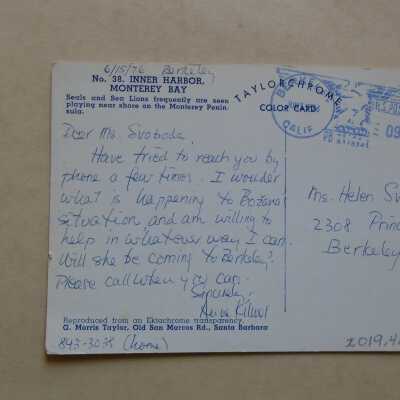 6/15/76 Berkeley
No. 38. INNER HARBOR,
MONTEREY BAY
Seals and Sea Lions frequently are seen
playing near shore on the Monterey Penin-
sula.
TAYLORCHROME
COLOR CARD
CALIF
09
Dear Ms. Svoboda,
Have tried to reach you by
phone a few times. I wonder
what is happening to Božena
situation, and am willing to
help in whatever way I can.
Will she be coming to Berkeley?
Please call when you can.
Sincerely,
Ms. Helen Sv
2308 Prin
Berkeley
Reproduced from an Ektachrome transparency.
G. Morris Taylor, Old San Marcos Rd., Santa Barbara
843-3038 (home)
2019.4